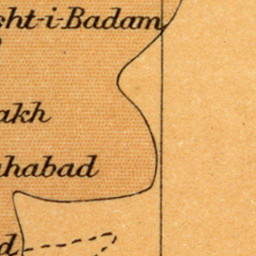 sht-i-Badam
akh
ahabad
d